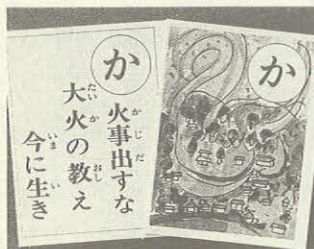 か
火事出すな
大火の教え
今に生き
か